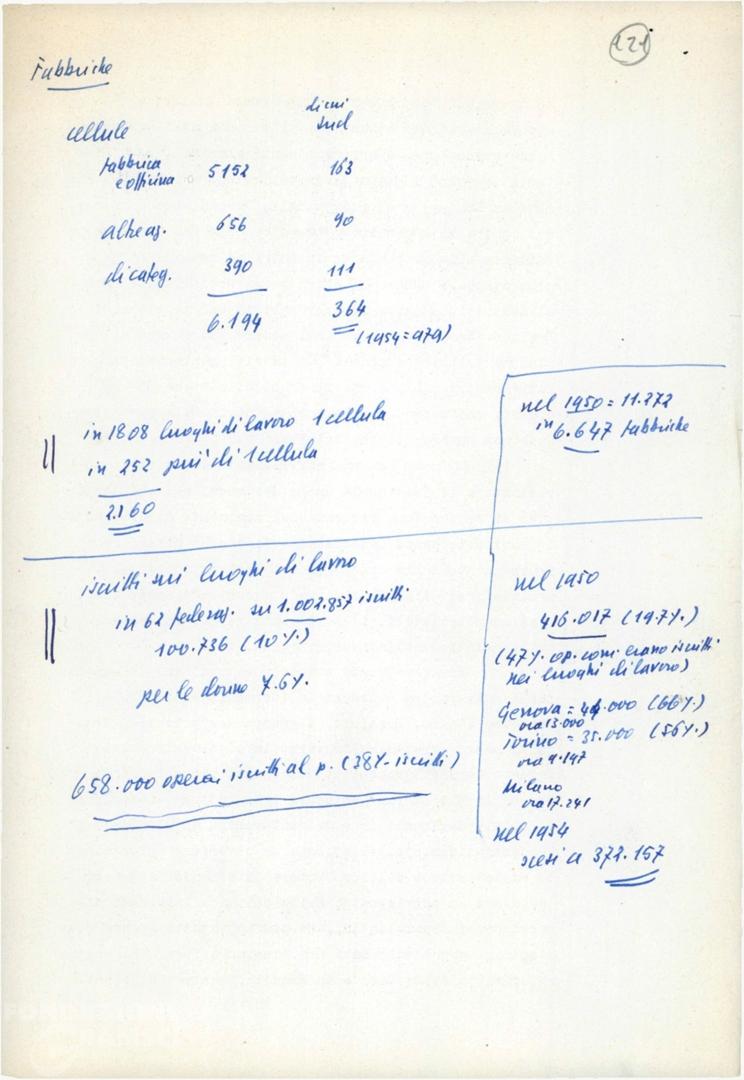 221
Fabbriche
di cui
sud
cellule
fabbrica
e officina 5152 163
altre az. 656 90
di categ. 390 111
6.194 364
(1954=979)
in 1808 luoghi di lavoro 1 cellula
in 252 più di 1 cellula
2.160
nel 1950 = 11.272
in 6.647 fabbriche
iscritti sui luoghi di lavoro
in 62 federaz. su 1.002.857 iscritti
100.736 (10%)
per le donne 7.6%.
658.000 operai iscritti al p. (38% iscritti)
nel 1950
416.017 (19.7%.)
(47% op. com. erano iscritti
nei luoghi di lavoro)
Genova = 44.000 (66%.)
ora 13.000
Torino = 35.000 (56%.)
ora 9.197
Milano
ora 17.241
nel 1954
scesi a 372.157
FONDAZIONE